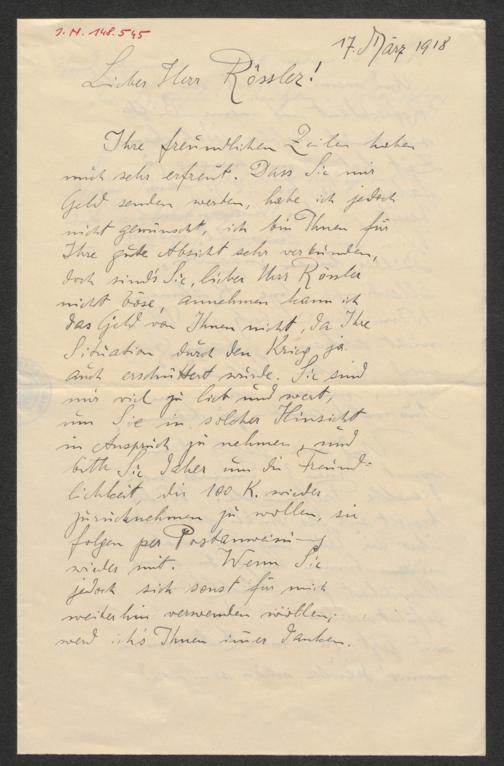 I.N. 148.545
17. März 1918
Lieber Herr Rössler!
Ihre freundlichen Zeilen haben
mich sehr erfreut. Dass Sie mir
Geld senden werden, habe ich jedoch
nicht gewünscht, ich bin Ihnen für
Ihre gute Absicht sehr verbunden,
doch sind's Sie, lieber Herr Rössler
nicht böse, annehmen kann ich
das Geld von Ihnen nicht, da Ihre
Situation durch den Krieg ja
auch erschüttert wurde. Sie sind
mir viel zu lieb und wert,
um Sie in solcher Hinsicht
in Anspruch zu nehmen, und
bitte Sie daher um die Freund-
lichkeit, die 100 K. wieder
zurücknehmen zu wollen, sie
folgen per Postanweisung
wieder mit. Wenn Sie
jedoch sich sonst für mich
weiterhin verwenden wollen,
werd ich's Ihnen immer danken.